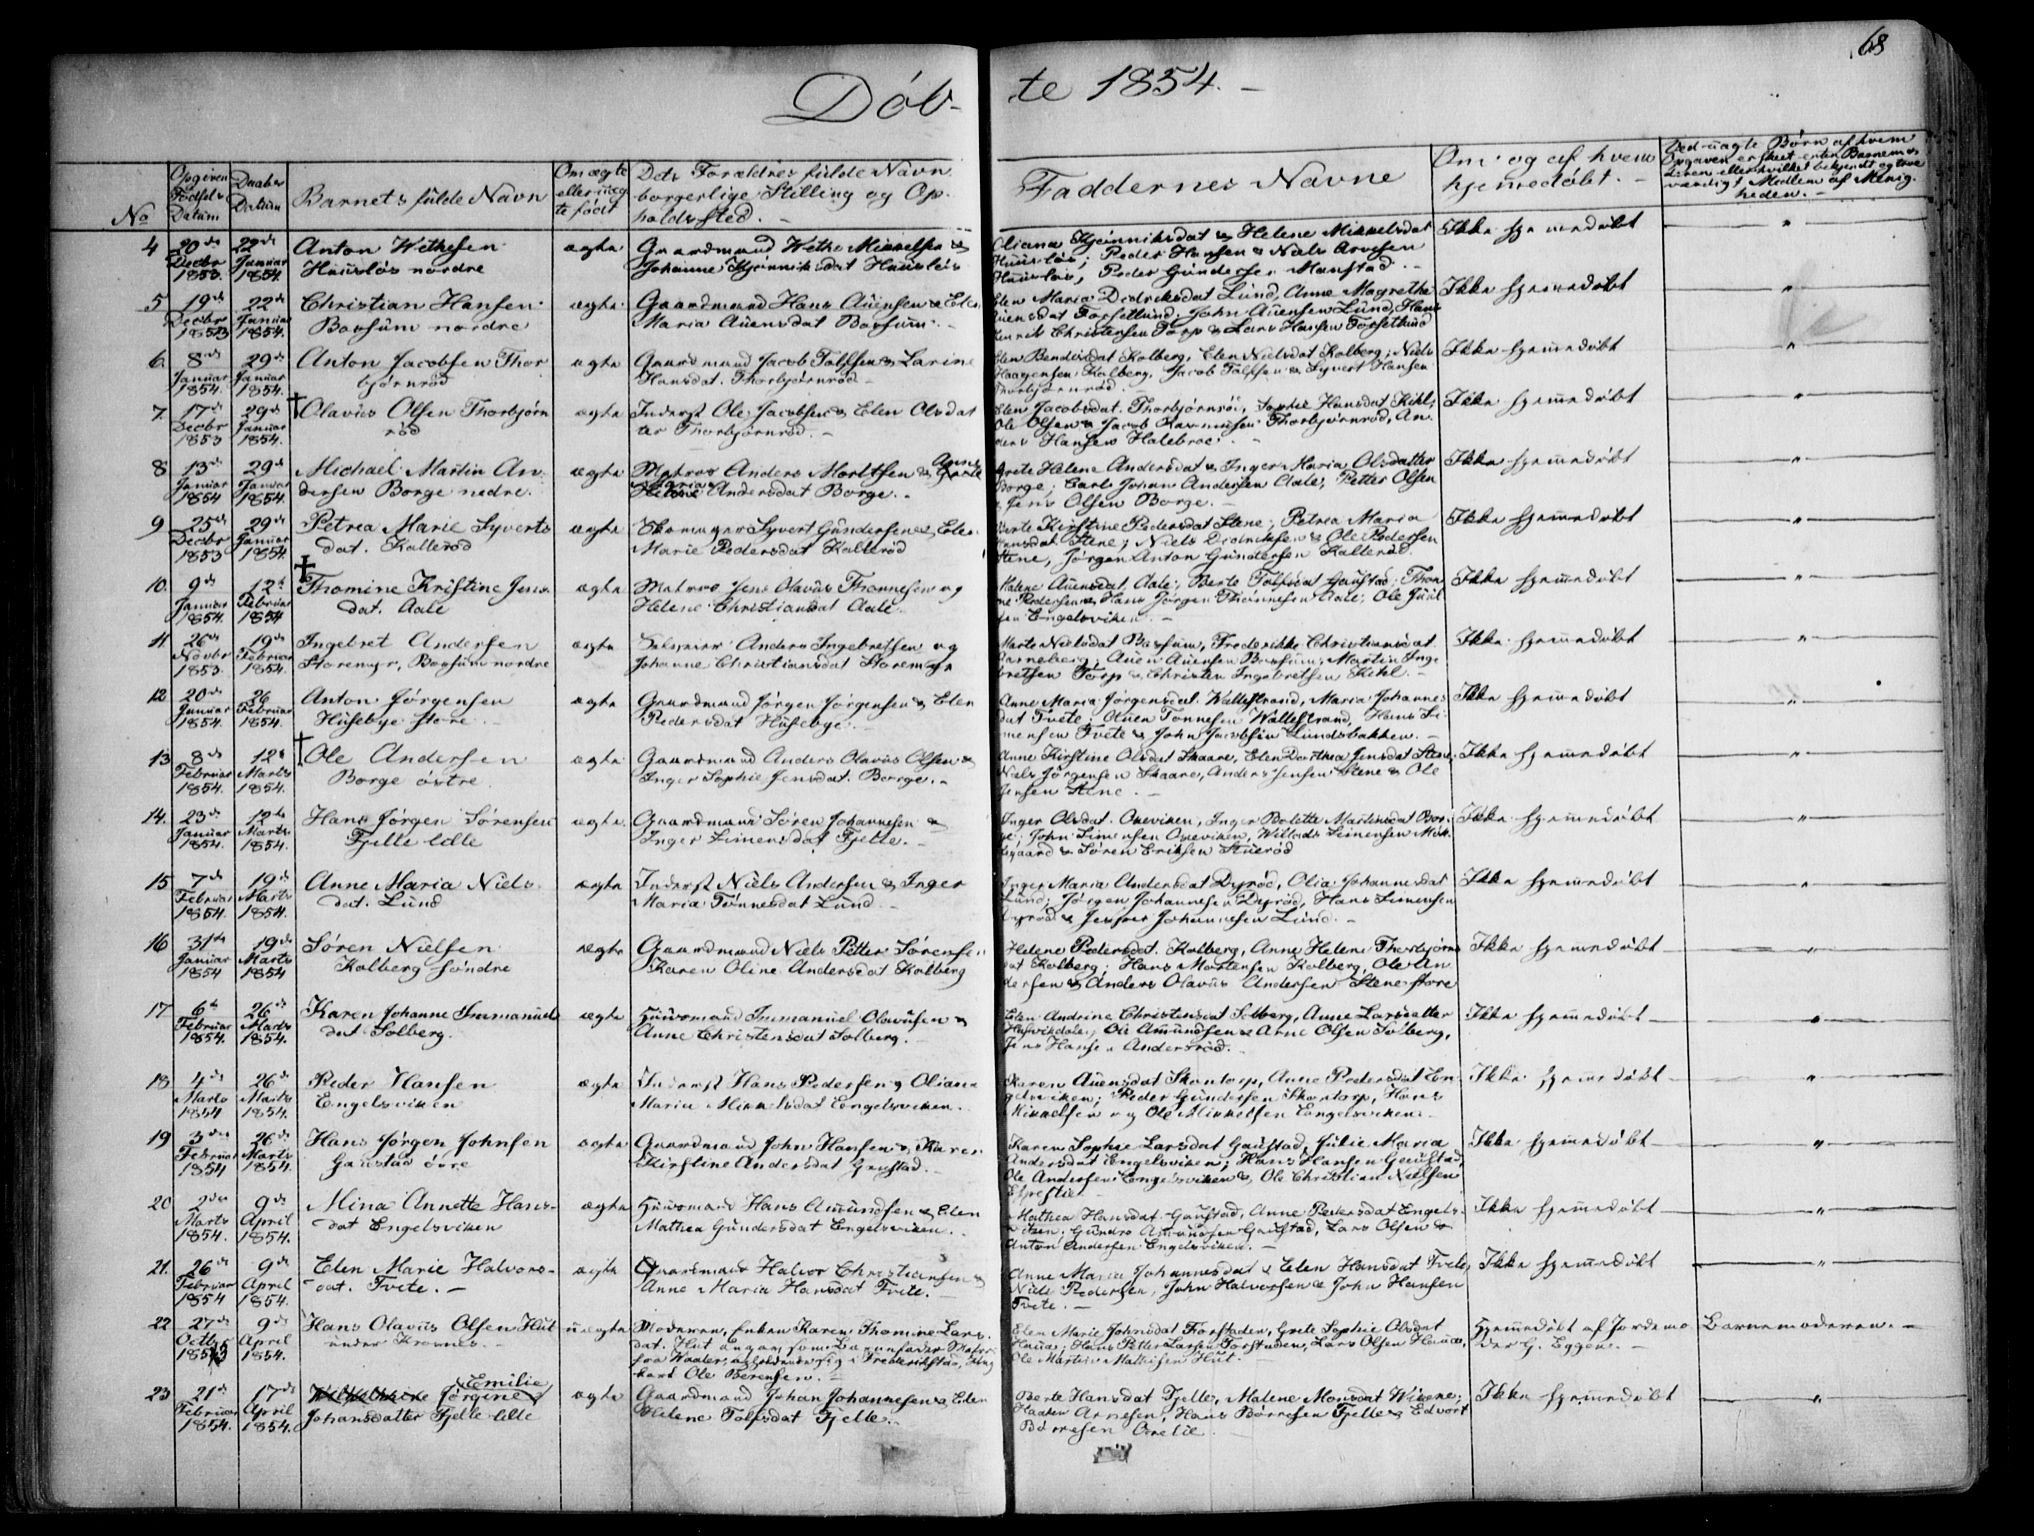 68
Döb-
te 1854. -
No
Opgiven Fødsels Datum
Daabs Datum
Barnets fulde Navn
Om ægte eller uægte født
Dets Forældres fulde Navn borgerlige Stilling og Opholdssted. -
Faddernes Navne
Om og af hvem hjemmedøbt. -
Ved uagte Børn af hvem Opgaven er skeet enten Barnemoderen eller hvilket bekjendt og troværdigt Medlem af Menigheden. -
4 20de Decbr 1853. 22de Januar 1854.
Anton Wethesen
Huuslös nordre
ægte
Gaardmand Wethe Mikkelsen &
Johanne Kjönniksdat Huuslös
Oliana Kjönniksdat & Helene Mikkelsdat
Huuslös; Peder Hansen & Niels Arvesen
Huuslös, Peder Gundersen Manstad. -
Ikke hjemmedöbt "
5 19de Decbr 1853 22de Januar 1854.
Christian Hansen
Bossum nordre
ægte
Gaardmand Hans Auensen & Elen
Maria Auensdat Bossum. -
Elen Maria Didriksdat Lund, Anne Magrethe
Auensdat Torsetlund; John Auensen Lund, Hans
Henrik Christensen Torp & Lars Hansen Torsetlund
Ikke hjemmedöbt "
6. 8de Januar 1854. 29de Januar 1854.
Anton Jacobsen Thor
björnröd
ægte
Gaardmand Jacob Tolfsen & Larine
Hansdat. Thorbjörnröd -
Elen Bendixdat Kolberg, Elen Nielsdat Kolberg; Niels
Haagensen Kolberg, Jacob Tolfsen & Syvert Hansen
Thorbjörnröd. -
Ikke hjemmedöbt "
7. 17de Decbr 1853 29de Januar 1854.
† Olavus Olsen Thorbjörn
röd
ægte
Inderst Ole Jacobsen & Elen Olsdat
ter Thorbjörnröd. -
Elen Jacobsdat. Thorbjörnröd, Sophie Hansdat Kihl,
Ole Olsen & Jacob Rasmussen Thorbjörnröd, An
ders Hansen Halebroe. -
Ikke hjemmedöbt "
8 13de Januar 1854 29de Januar 1854.
Michael Martin An
dersen Borge nedre.
ægte
Matros Anders Morltsen & Anne Grete
Maria Helene Andersdat Borge. -
Grete Helene Andersdat & Inger Maria Olsdatter
Borge; Carl Johan Andersen Aale, Petter Olsen
& Jens Olsen Borge. -
Ikke hjemmedöbt "
9 25de Decbr 1853 29de Januar 1854.
Petrea Marie Syverts
dat. Kalleröd
ægte
Skomager Syvert Gundersen & Elen
Marie Pedersdat Kalleröd
Berte Kirstine Pedersdat Stene; Petrea Maria
Hansdat Stene; Niels Didriksen & Ole Pedersen
Stene, Jörgen Anton Gundersen Kalleröd.
Ikke hjemmedöbt "
10. 9de Januar 1854. 12te Februar 1854
† Thomine Kristine Jens
dat. Aale
ægte
Matros Jens Olavus Thonnesen og
Helene Christiansdat Aale.
Helene Auensdat. Aale, Berte Tolfsdat Gaustad; Thon
ne Pedersen & Hans Jörgen Thonnesen Aale; Ole Juul
sen Engelsviken. -
Ikke hjemmedöbt "
11 26de Novbr 1853. 19de Februar 1854.
Ingebret Andersen
Storemyr, Bossum nordre
ægte
Selveier Anders Ingebretsen og
Johanne Christiansdat Storemyr
Marte Nielsdat Bossum, Frederikke Christiansdat
Auen Auensen Bossum; Martin Inge
bretsen Torp & Christen Ingebretsen Kihl. -
Ikke hjemmedöbt "
12 20de Januar 1854. 26 Februar 1854.
Anton Jörgensen
Husebye store. -
ægte
Gaardmand Jörgen Jörgensen & Elen
Pedersdat Husebye. -
Anne Maria Jörgensdat. Wallestrand, Maria Johannes
dat Tvete; Auen Tonnesen Wallestrand, Hans Si
mensen Tvete & John Jacobsen Lundsbakken. -
Ikke hjemmedöbt "
13 8de Februar 1854. 12te Marts 1854.
† Ole Andersen
Borge östre
ægte
Gaardmand Anders Olavus Olsen &
Inger Sophie Jensdat. Borge. -
Anne Kirstine Olsdat Skaare, Elen Dorthea Jensdat Stene,
Niels Jörgensen Skaare, Anders Jensen Stene & Ole
Jensen Stene. -
Ikke hjemmedöbt "
14. 23de Januar 1854. 12te Marts 1854.
Hans Jörgen Sörensen
Fjelle lille
ægte.
Gaardmand Sören Johannesen &
Inger Simensdat Fjelle. -
Inger Olsdat. Oxeviken, Inger Bolette Martinsdat Bor
ge; John Simensen Oxeviken, Willads Simensen Mök
legaard & Sören Eriksen Stueröd
Ikke hjemmedöbt "
15 7de Februar 1854. 19de Marts 1854.
Anne Maria Niels
dat. Lund
ægte
Inderst Niels Andersen & Inger
Maria Tönnesdat Lund. -
Inger Maria Andersdat Dyröd, Olia Johannesdat
Lund; Jörgen Johannesen Dyröd, Hans Simensen
Dyröd & Jesper Johannesen Lund. -
Ikke hjemmedöbt "
16 31te Januar 1854 19de Marts 1854
Sören Nielsen
Kolberg söndre
ægte
Gaardmand Niels Petter Sörensen
Karen Oline Andersdat Kolberg
Helene Pedersdat. Kolberg, Anne Helene Thorbjörns
dat Kolberg; Hans Mortensen Kolberg, Ole An
dersen & Anders Olavus Andersen Stene store
Ikke hjemmedöbt "
17 6te Februar 1854. 26de Marts 1854.
Karen Johanne Immanuels
dat Solberg.
ægte
Huusmand Immanuel Olavusen &
Anne Christensdat Solberg. -
Elen Andrine Christensdat Solberg, Anne Larsdatter
Ole Amundsen & Arne Olsen Solberg,
Jens Hansen Andersröd. -
Ikke hjemmedöbt "
18 4de Marts 1854 26de Marts 1854.
Peder Hansen
Engelsviken
ægte
Inderst Hans Pedersen & Oliana
Maria Mikkelsdat Engelsviken. -
Karen Auensdat Skontorp, Anne Pedersdat En
gelsviken; Peder Gundersen Skontorp, Hans
Mikkelsen og Ole Mikkelsen Engelsviken. -
Ikke hjemmedöbt "
19 3die Februar 1854 26de Marts 1854.
Hans Jörgen Johnsen
Gaustad övre
ægte
Gaardmand John Hansen & Karen
Kirstine Andersdat Gaustad. -
Karen Sophie Larsdat Gaustad, Julie Maria
Andersdat Engelsviken; Hans Hansen Gaustad,
Ole Andersen Engelsviken & Ole Christian Nielsen
Ikke hjemmedöbt "
20 2den Marts 1854. 9de April 1854.
Mina Annette Hans-
dat Engelsviken
ægte
Huusmand Hans Amundsen & Elen
Mathea Gundersdat Engelsviken. -
Mathea Hansdat Gaustad, Anne Pedersdat Engels
viken; Gundro Amundsen Gaustad, Lars Olsen &
Anton Andersen Engelsviken. -
Ikke hjemmedöbt "
21. 26de Februar 1854 9de April 1854.
Elen Marie Halvors-
dat. Tvete. -
ægte
Gaardmand Halvor Christiansen &
Anne Maria Hansdat Tvete. -
Anne Maria Johannesdat & Elen Hansdat Tvete,
Niels Pedersen, John Halvorsen & John Hansen
Tvete. -
Ikke hjemmedöbt "
22 27de Octbr 1853 9de April 1854.
Hans Olavus Olsen Hut
under Kroxnes. -
uægte
Moderen, Enken Karen Thomine Lars
dat. Hut angav som Barnefader Matros
fra Waaler, opholdende sig i Frederikstad, Ung
karl Ole Berensen. -
Elen Marie Johnsdat Torstaden, Grete Sophie Olsdat
Hauae; Hans Petter Larsen Torstaden, Lars Olsen Hauae,
Ole Martin Mathisen Hut. -
Hjemmedöbt af Jordemo
der G. Eggen. -
Barnemoderen. -
23 21de Februar 1854. 17de April 1854.
Emilie
Jörgine
Johansdatter Fjelle lille
ægte
Gaardmand Johan Johannesen & Elen
Helene Tolfsdat Fjelle. -
Berte Hansdat Fjelle, Malene Monsdat Wivene;
Haaken Arnesen, Hans Börresen Fjelle & Edvort
Börresen Örelie
Ikke hjemmedöbt "